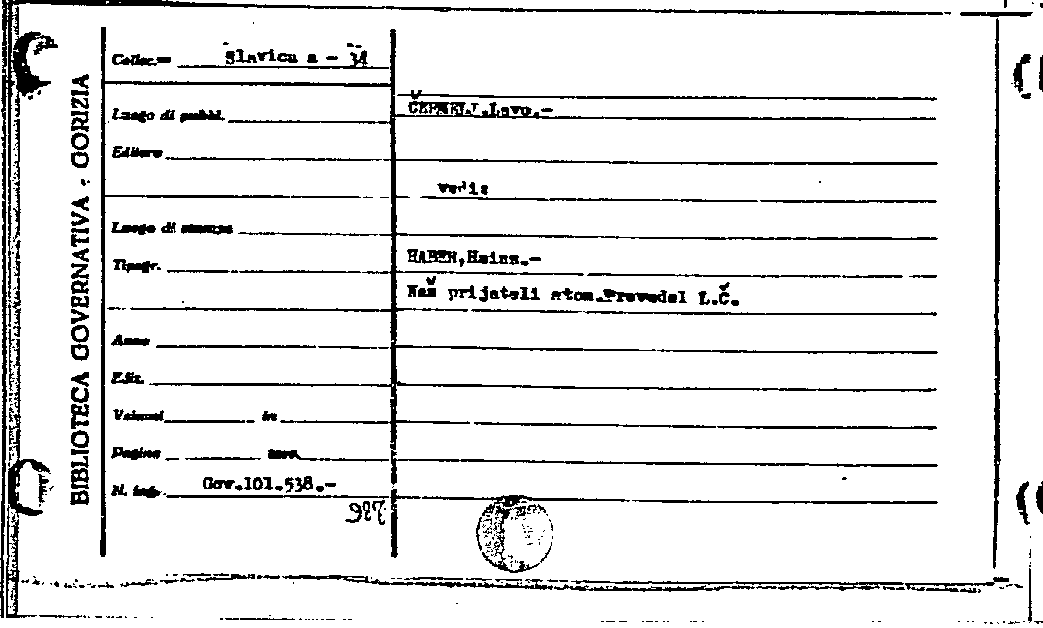 BIBLIOTECA GOVERNATIVA - GORIZIA
Colloc.= Slavica a - 34
ČERMELJ,Lavo.-
Luogo di pubbl.
Editore
vedi:
Luogo di stampa
HABER,Heinz.-
Tipogr.
Naš prijatelj atom.Prevedel L.Č.
Anno
Ediz.
Volumi in
Pagine
N. ingr. Gov.101.538.-